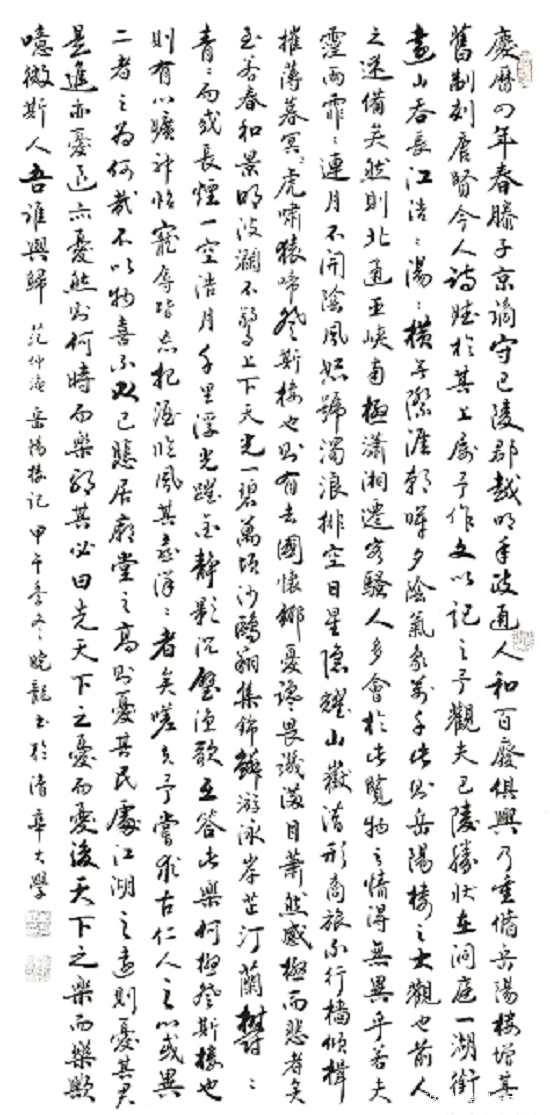 慶曆四年春滕子京謫守巴陵郡越明年政通人和百廢俱興乃重脩岳陽樓增其
舊制刻唐賢今人詩賦於其上屬予作文以記之予觀夫巴陵勝狀在洞庭一湖銜
遠山吞長江浩〻湯〻橫無際涯朝暉夕陰氣象萬千此則岳陽樓之大觀也前人
之述備矣然則北通巫峽南極瀟湘遷客騷人多會於此覽物之情得無異乎若夫
霪雨霏〻連月不開陰風怒號濁浪排空日星隱耀山嶽潛形商旅不行檣傾楫
摧薄暮冥〻虎嘯猿啼登斯樓也則有去國懷鄉憂讒畏譏滿目蕭然感極而悲者矣
至若春和景明波瀾不驚上下天光一碧萬頃沙鷗翔集錦鱗游泳岸芷汀蘭鬱〻
青〻而或長煙一空浩月千里浮光躍金靜影沉壁漁歌互答此樂何極登斯樓也
則有心曠神怡寵辱皆忘把酒臨風其喜洋〻者矣嗟夫予嘗求古仁人之心或異
二者之為何哉不以物喜不以己悲居廟堂之高則憂其民處江湖之遠則憂其君
是進亦憂退亦憂然則何時而樂耶其必曰先天下之憂而憂後天下之樂而樂歟
噫微斯人吾誰與歸 范仲淹岳陽樓記 甲午季冬曉龍書於清華大學